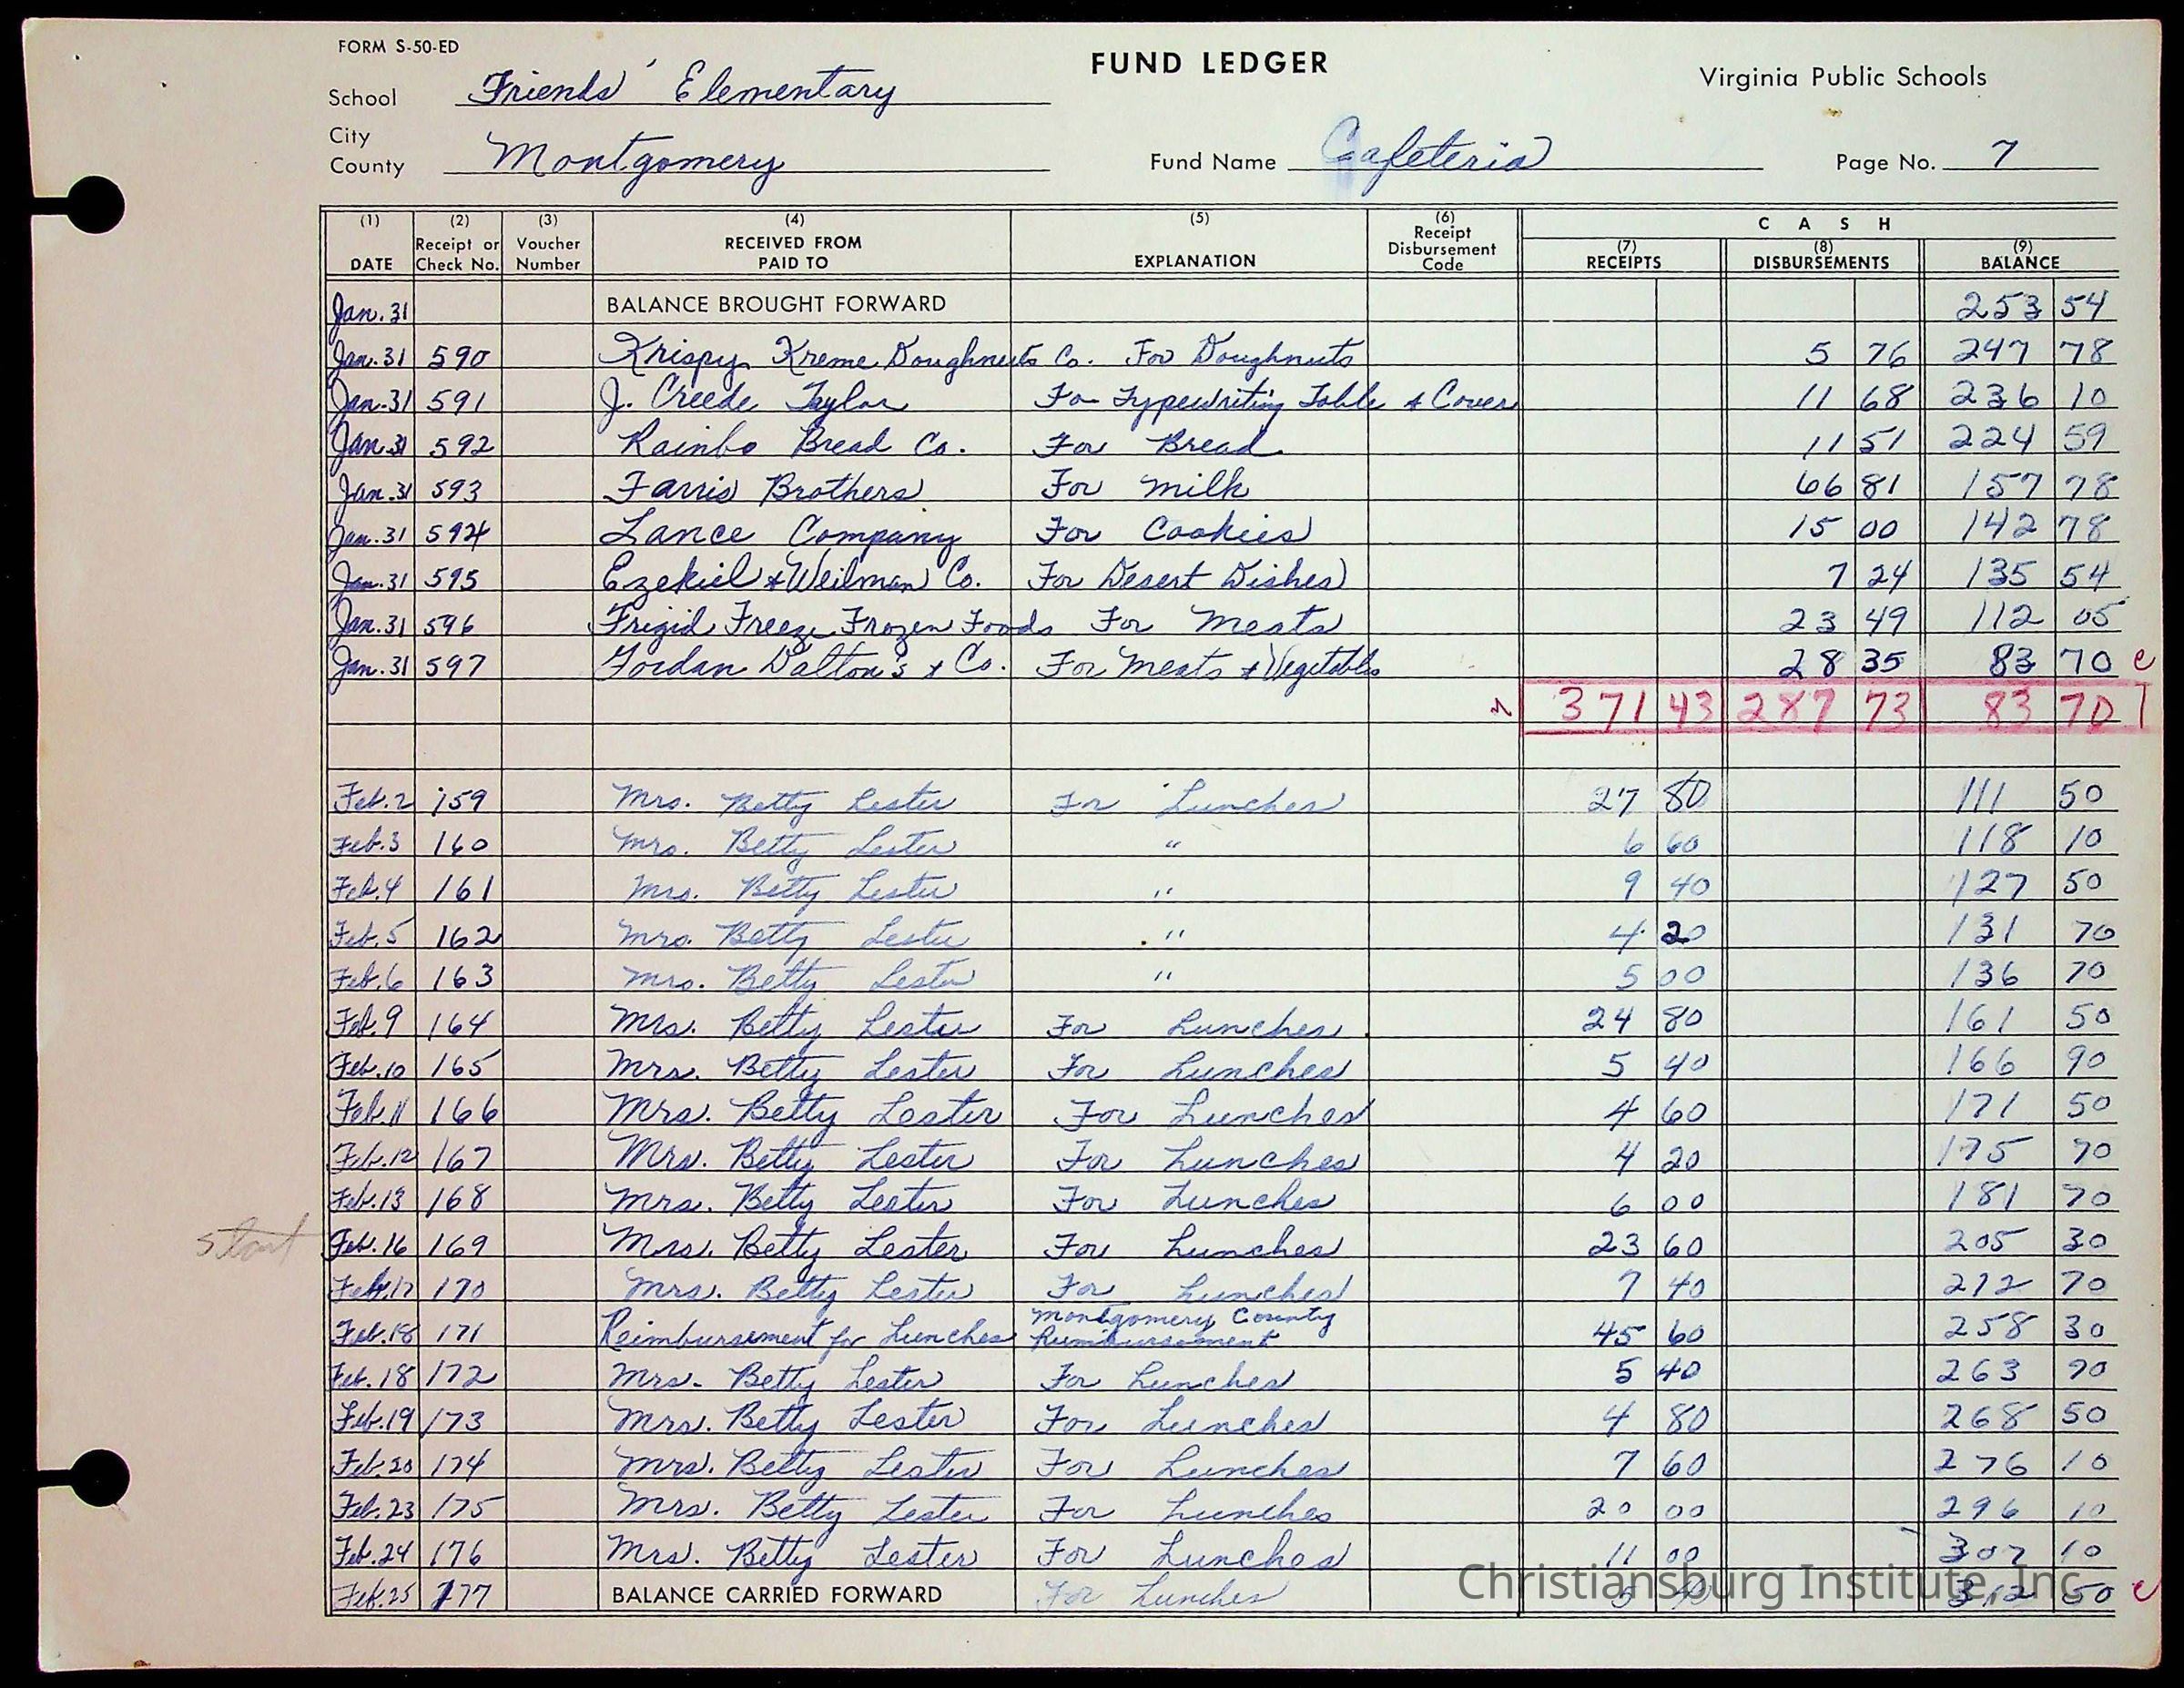 FORM S-50-ED
FUND LEDGER
Virginia Public Schools
School Friends' Elementary
City
County Montgomery
Fund Name Cafeteria
Page No. 7
(1) DATE (2) Receipt or Check No. (3) Voucher Number (4) RECEIVED FROM PAID TO (5) EXPLANATION (6) Receipt Disbursement Code CASH (7) RECEIPTS (8) DISBURSEMENTS (9) BALANCE
Jan. 31 BALANCE BROUGHT FORWARD 253 54
Jan. 31 590 Krispy Kreme Doughnuts Co. For Doughnuts 5 76 247 78
Jan. 31 591 J. Creede Taylor For Typewriting Table & Cover 11 68 236 10
Jan. 31 592 Rainbo Bread Co. For Bread 11 51 224 59
Jan. 31 593 Farris Brothers For Milk 66 81 157 78
Jan. 31 594 Lance Company For Cookies 15 00 142 78
Jan. 31 595 Ezekiel & Weilman Co. For Desert Dishes 7 24 135 54
Jan. 31 596 Frigid Freeze Frozen Foods For Meats 23 49 112 05
Jan. 31 597 Jordan Dalton's & Co. For Meats & Vegetables 28 35 83 70 c
371 43 287 73 83 70
Feb. 2 159 Mrs. Betty Lester For Lunches 27 80 111 50
Feb. 3 160 Mrs. Betty Lester " 6 60 118 10
Feb. 4 161 Mrs. Betty Lester " 9 40 127 50
Feb. 5 162 Mrs. Betty Lester " 4 20 131 70
Feb. 6 163 Mrs. Betty Lester " 5 00 136 70
Feb. 9 164 Mrs. Betty Lester For Lunches 24 80 161 50
Feb. 10 165 Mrs. Betty Lester For Lunches 5 40 166 90
Feb. 11 166 Mrs. Betty Lester For Lunches 4 60 171 50
Feb. 12 167 Mrs. Betty Lester For Lunches 4 20 175 70
Feb. 13 168 Mrs. Betty Lester For Lunches 6 00 181 70
start Feb. 16 169 Mrs. Betty Lester For Lunches 23 60 205 30
Feb. 17 170 Mrs. Betty Lester For Lunches 7 40 212 70
Feb. 18 171 Reimbursement for Lunches Montgomery County Reimbursement 45 60 258 30
Feb. 18 172 Mrs. Betty Lester For Lunches 5 40 263 70
Feb. 19 173 Mrs. Betty Lester For Lunches 4 80 268 50
Feb. 20 174 Mrs. Betty Lester For Lunches 7 60 276 10
Feb. 23 175 Mrs. Betty Lester For Lunches 20 00 296 10
Feb. 24 176 Mrs. Betty Lester For Lunches 11 00 307 10
Feb. 25 177 BALANCE CARRIED FORWARD For Lunches 5 40 312 50 c
Christiansburg Institute, Inc